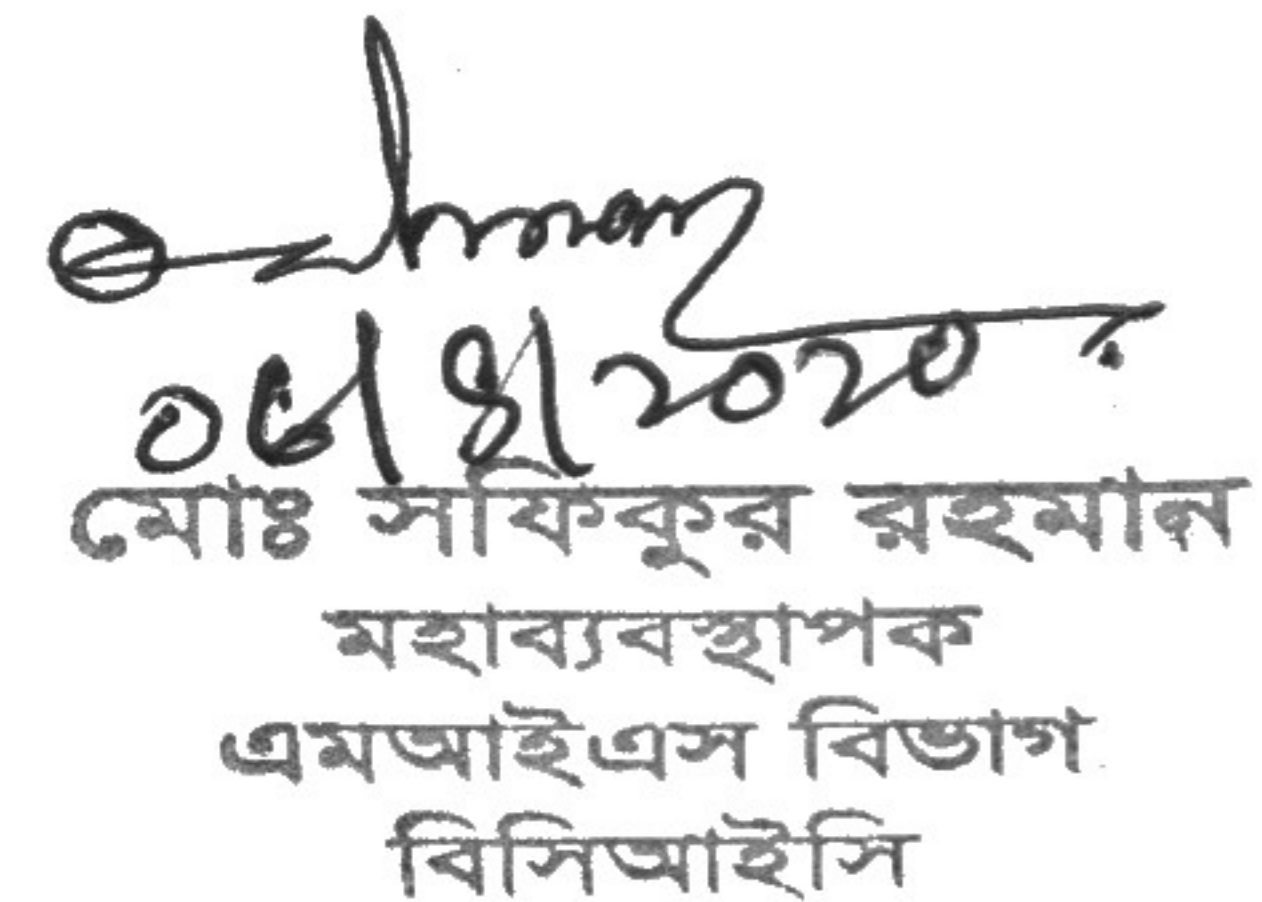 ০৬/৪/২০২০
মোঃ সফিকুর রহমান
মহাব্যবস্থাপক
এমআইএস বিভাগ
বিসিআইসি